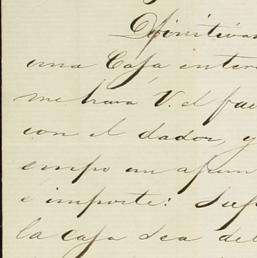 Definitivam
una Caja inter
me hara V. el fav
con el dador, y
empo un apun
e importe: Sup
la caja sea del